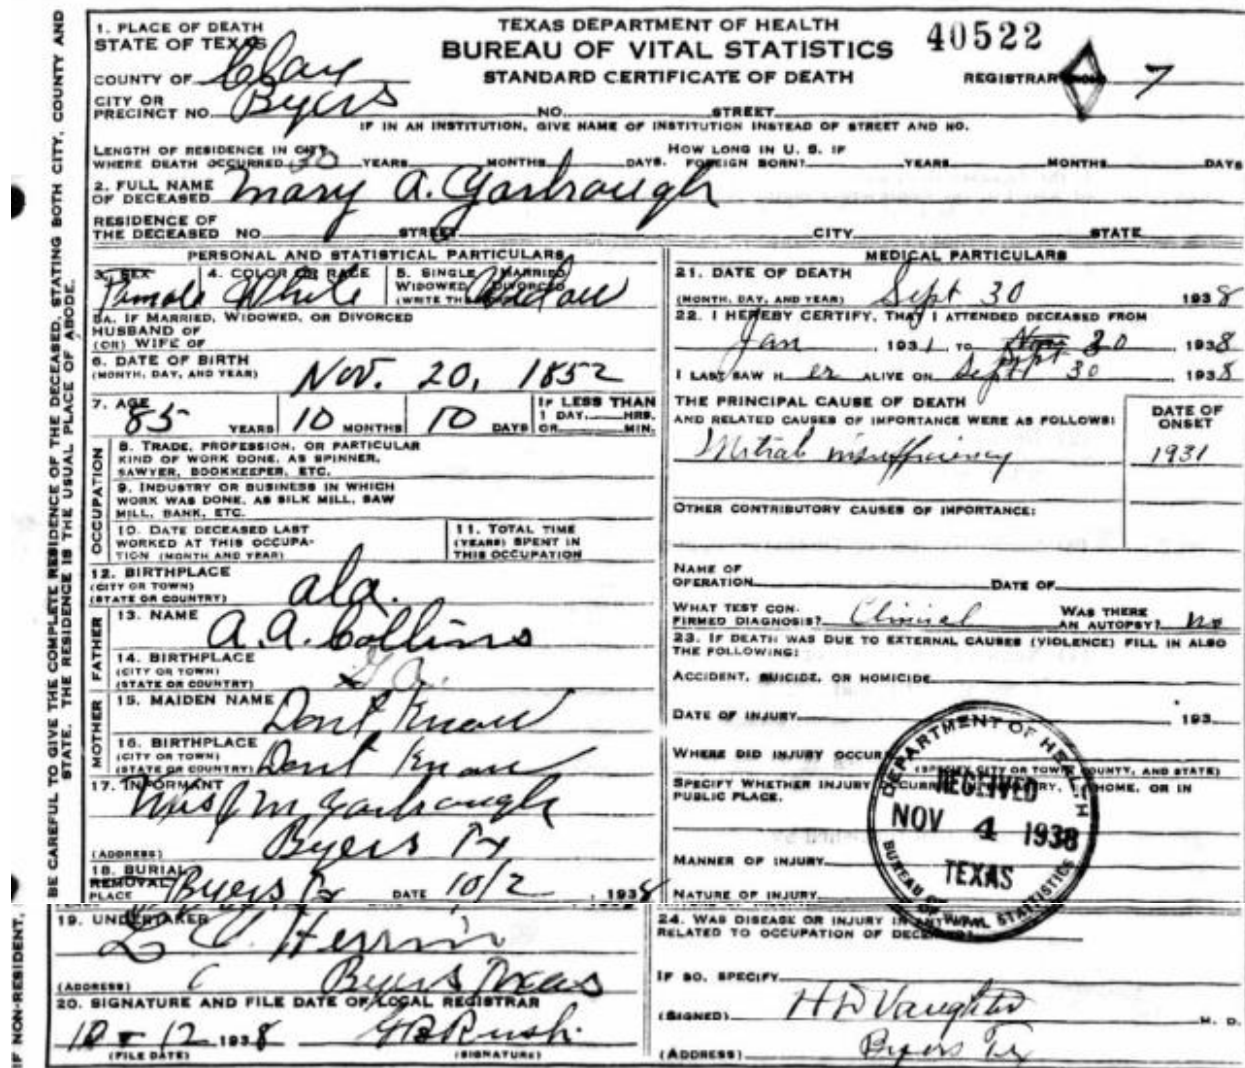 BE CAREFUL TO GIVE THE COMPLETE RESIDENCE OF THE DECEASED, STATING BOTH CITY, COUNTY AND
STATE. THE RESIDENCE IS THE USUAL PLACE OF ABODE.
IF NON-RESIDENT,
TEXAS DEPARTMENT OF HEALTH
BUREAU OF VITAL STATISTICS
STANDARD CERTIFICATE OF DEATH
40522
REGISTRAR 7
1. PLACE OF DEATH
STATE OF TEXAS
COUNTY OF Clay
CITY OR
PRECINCT NO. Byers NO. STREET
IF IN AN INSTITUTION, GIVE NAME OF INSTITUTION INSTEAD OF STREET AND NO.
LENGTH OF RESIDENCE IN CITY HOW LONG IN U. S. IF
WHERE DEATH OCCURRED 30 YEARS MONTHS DAYS. FOREIGN BORN? YEARS MONTHS DAYS
2. FULL NAME
OF DECEASED Mary A. Yarbrough
RESIDENCE OF
THE DECEASED NO. STREET CITY STATE
PERSONAL AND STATISTICAL PARTICULARS
3. SEX 4. COLOR OR RACE 5. SINGLE MARRIED
WIDOWED DIVORCED
(WRITE THE
Female White Widow
5A. IF MARRIED, WIDOWED, OR DIVORCED
HUSBAND OF
(OR) WIFE OF
6. DATE OF BIRTH
(MONTH, DAY, AND YEAR) Nov. 20, 1852
7. AGE IF LESS THAN
85 YEARS 10 MONTHS 10 DAYS 1 DAY, HRS.
OR MIN.
OCCUPATION
8. TRADE, PROFESSION, OR PARTICULAR
KIND OF WORK DONE, AS SPINNER,
SAWYER, BOOKKEEPER, ETC.
9. INDUSTRY OR BUSINESS IN WHICH
WORK WAS DONE, AS SILK MILL, SAW
MILL, BANK, ETC.
10. DATE DECEASED LAST
WORKED AT THIS OCCUPA-
TION (MONTH AND YEAR)
11. TOTAL TIME
(YEARS) SPENT IN
THIS OCCUPATION
12. BIRTHPLACE
(CITY OR TOWN)
(STATE OR COUNTRY) Ala.
FATHER
13. NAME A. A. Collins
14. BIRTHPLACE
(CITY OR TOWN)
(STATE OR COUNTRY) Ga.
MOTHER
15. MAIDEN NAME Dont Know
16. BIRTHPLACE
(CITY OR TOWN)
(STATE OR COUNTRY) Dont Know
17. INFORMANT
Mrs J M Yarbrough
(ADDRESS) Byers Tx
18. BURIAL
REMOVAL
PLACE Byers Tx DATE 10/2, 1938
19. UNDERTAKER
Herrin
(ADDRESS) Byers Texas
20. SIGNATURE AND FILE DATE OF LOCAL REGISTRAR
10 - 12 1938 G B Rush
(FILE DATE) (SIGNATURE)
MEDICAL PARTICULARS
21. DATE OF DEATH
(MONTH, DAY, AND YEAR) Sept 30 1938
22. I HEREBY CERTIFY, THAT I ATTENDED DECEASED FROM
Jan, 1931, TO Sept 30 1938
I LAST SAW H er ALIVE ON Sept 30 1938
THE PRINCIPAL CAUSE OF DEATH
AND RELATED CAUSES OF IMPORTANCE WERE AS FOLLOWS:
DATE OF
ONSET
Mitral insufficiency 1931
OTHER CONTRIBUTORY CAUSES OF IMPORTANCE:
NAME OF
OPERATION DATE OF
WHAT TEST CON-
FIRMED DIAGNOSIS? Clinical WAS THERE
AN AUTOPSY? no
23. IF DEATH WAS DUE TO EXTERNAL CAUSES (VIOLENCE) FILL IN ALSO
THE FOLLOWING:
ACCIDENT, SUICIDE, OR HOMICIDE
DATE OF INJURY 193
WHERE DID INJURY OCCUR
(SPECIFY CITY OR TOWN, COUNTY, AND STATE)
SPECIFY WHETHER INJURY OCCURRED IN INDUSTRY, HOME, OR IN
PUBLIC PLACE.
MANNER OF INJURY
NATURE OF INJURY
DEPARTMENT OF HEALTH
RECEIVED
NOV 4 1938
TEXAS
BUREAU OF VITAL STATISTICS
24. WAS DISEASE OR INJURY IN ANY
RELATED TO OCCUPATION OF DECEASED?
IF SO, SPECIFY
(SIGNED) H D Vaughter M. D.
(ADDRESS) Byers Tex